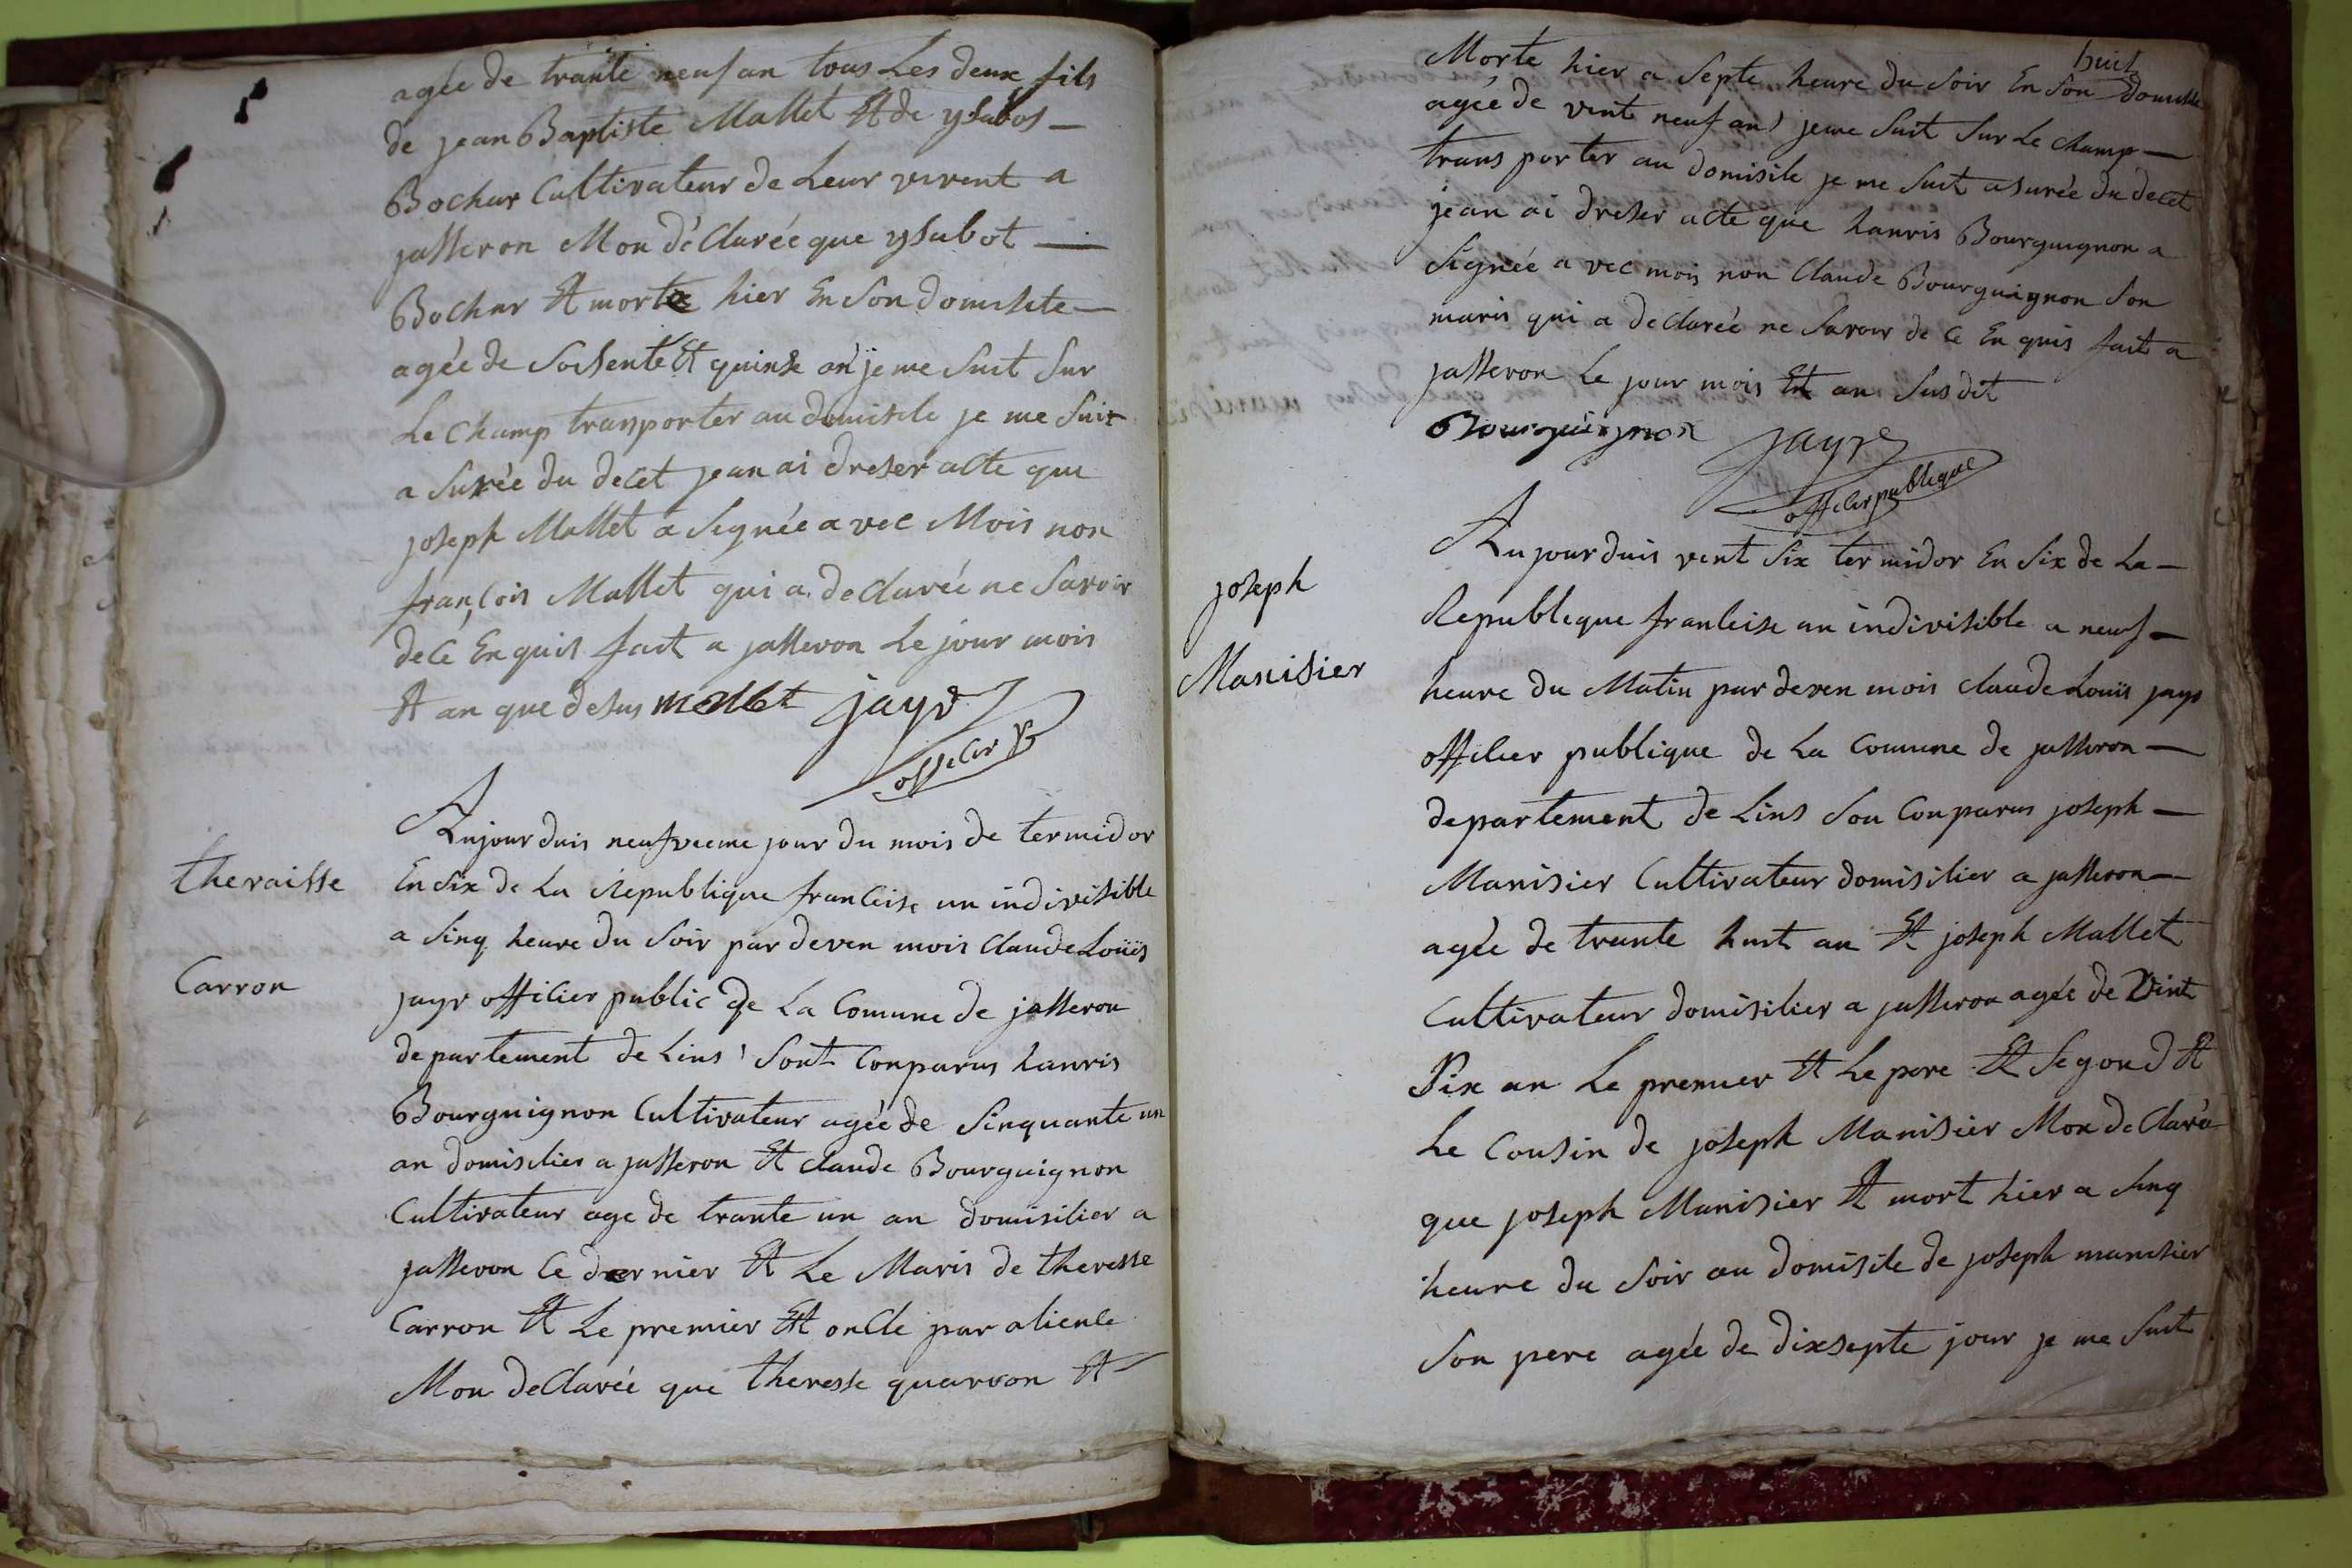 agée de trante neuf an tous Les deux fils
de jean Baptiste Mallet Et de ysabos —
Bochar Cultivateur de Leur vivent a
jasseron Mon déClarée que ysabot —
Bochar Et morte hier En Son domisile —
agée de Soisente Et quinse an je me Suit Sur
Le Champ transporter au domisile je me Suit
a Surée du decet jean ai dreser acte que
joseph Mallet a Signée a vec Mois non
françois Mallet qui a declarée ne Savoir
de Ce Enquis fait a jasseron Le jour mois
Et an que desus mallet jayr
officier p
theraisse
Carron
Aujourduis neufveme jour du mois de termidor
En Six de La Republique franceise un indivisible
a Sinq heure du Soir par deven mois Claude Louïs
jayr officier public de La Comune de jasseron
departement de Lins Sont Conparus hanris
Bourguignon Cultivateur agée de Sinquante un
an domisilier a jasseron Et claude Bourguignon
Cultivateur age de trante un an domisilier a
jasseron Ce dernier Et Le Maris de theresse
Carron Et Le premier Et oncle par alience
Mon declarée que theresse quarron Et
huit
Morte hier a Septe heure du Soir En Son domisile
agée de vent neuf an je me Suit Sur Le Champ —
trans porter au domisile je me Suit asurée du decet
jean ai dreser acte que hanris Bourguignon a
Signée a vec mois non Claude Bourguignon Son
maris qui a declarée ne Savoir de Ce Enquis fait a
jasseron Le jour mois Et an Susdit
Bourguignon jayr
officier publique
joseph
Manisier
Aujourduis vent Six termidor En Six de La —
Republeque franleise un indivisible a neuf —
heure du Matin par deven mois claude Louïs jayr
officier publique de La Comune de jasseron —
departement de Lins Son Conparus joseph —
Manisier Cultivateur domisilier a jasseron —
agée de trante huit an Et joseph Mallet
Cultivateur domisilier a jasseron agée de vint
Six an Le premier Et Le pere Et Segond Et
Le Cousin de joseph Manisier Mon declarée
que joseph Manisier Et mort hier a Sinq
heure du Soir au domisile de joseph manisier
Son pere agée de dixsepte jour je me Suit